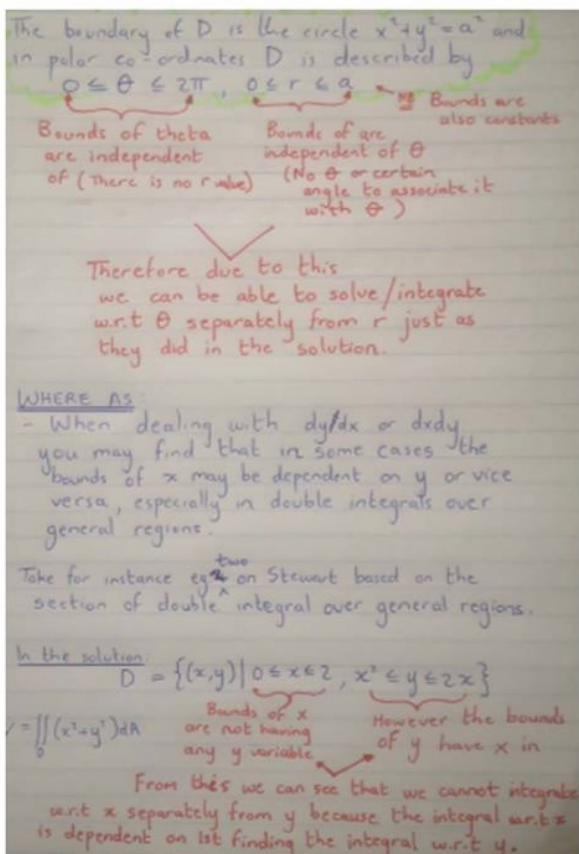 The boundary of D is the circle x²+y²=a² and
in polar co-ordinates D is described by
0 ≤ θ ≤ 2π, 0 ≤ r ≤ a
NB Bounds are
also constants
Bounds of theta
are independent
of (There is no r value)
Bounds of are
independent of θ
(No θ or certain
angle to associate it
with θ)
Therefore due to this
we can be able to solve/integrate
w.r.t θ separately from r just as
they did in the solution.
WHERE AS:
- When dealing with dy/dx or dxdy
you may find that in some cases the
bounds of x may be dependent on y or vice
versa, especially in double integrals over
general regions.
Take for instance eg two on Stewart based on the
section of double ^ integral over general regions.
In the solution:
D = {(x,y)|0 ≤ x ≤ 2, x² ≤ y ≤ 2x}
V = ∬(x²+y²)dA
D
Bounds of x
are not having
any y variable
However the bounds
of y have x in
From this we can see that we cannot integrate
w.r.t x separately from y because the integral w.r.t x
is dependent on 1st finding the integral w.r.t y.